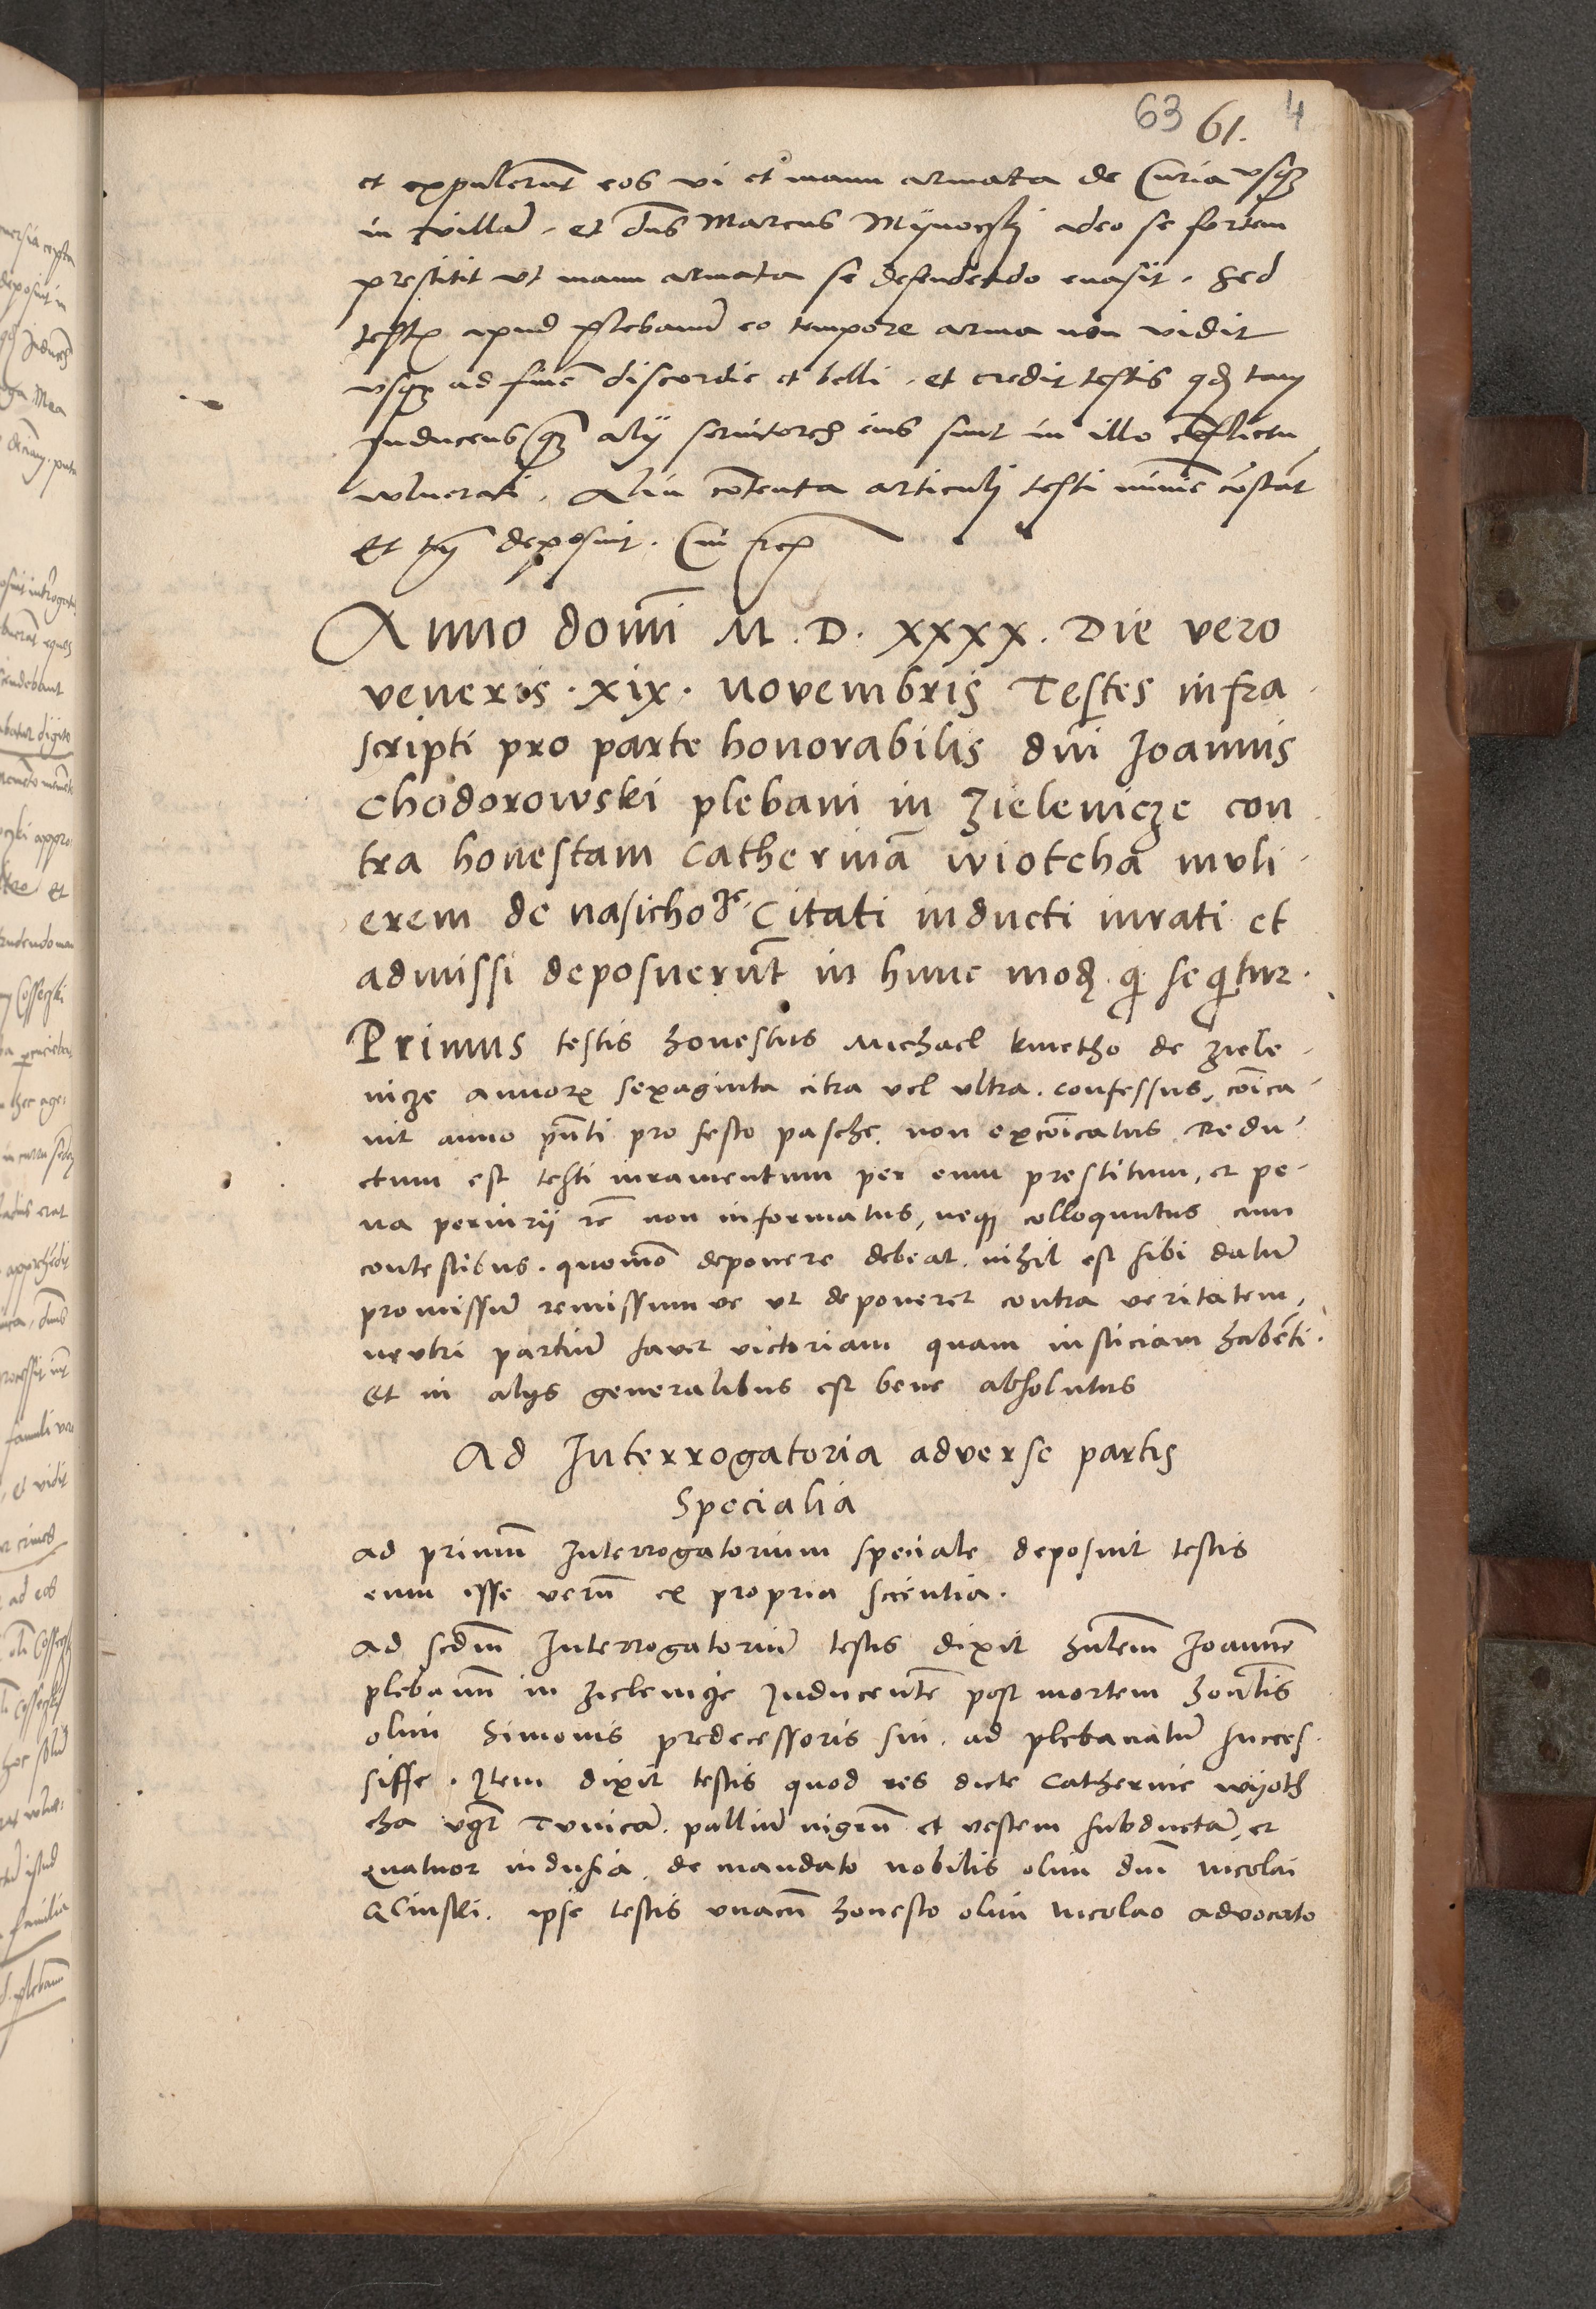 63 61. 4
et expulerūt eos vi et manu armata de Curia vsqȝ
in villā. et dn̄s Marcus Mÿnoczki adeo se fortem
prestitit vt manu armata se defendendo euasit. Sed
testis apud plebanū eo tempore arma non vidit
vsqȝ ad finē discordie et belli. et credit testis qđ tam
Inducens qȝ alÿ seruitores eius sunt in illo cōflictu
vulnerati. Alia cōtenta articuli testi nimie cōstāt
Et deposuit.
Anno domī M. D. XXXX. Die vero
veneris. xix. novembris Testes infra
scripti pro parte honorabilis dn̄i Joannis
Chodorowski plebani in Zielenicze con
tra honestam Catherinā wiotcha muli-
erem de nasichoᵈᶻᵉ. Citati inducti iurati et
admissi deposuerūt in hunc modū. qi seqitur.
Primus testis honestus Michael kmetho de ziele-
nicze annorꝝ sexaginta citra vel vltra. confessus, cōica-
uit anno pn̄ti pro festo pasche, non excōicatus. Dedu-
ctum est testi iuramentum per eum prestitum, et pe-
na periurÿ rē non informatus, neqȝ colloquutus cum
contestibus. quomō deponere debeat. nihil est sibi datū
promissū remissum ve vt deponeret contra veritatem,
neutri partiū favet victoriam quam iusticiam habēti.
Et in alÿs generalibus est bene absolutus
Ad Interrogatoria adverse partis
Specialia
Ad primū Interrogatorium speciale deposuit testis
eum esse verū ex propria scientia.
Ad scd̄m Interrogatoriū testis dixit hn̄tem Joannē
plebanū in zielenicze Inducentē post mortem honlis
olim Simonis predecessoris sui. ad plebanatū succes-
sisse. Item dixit testis quod res dicte Catherine wÿoth
cha vƺ Tunicā. palliū nigrū et vestem subductā, et
quatuor indusia, de mandato nobilis olim dn̄i Nicolai
ipse testis vnacū honesto olim Nicolao advocato